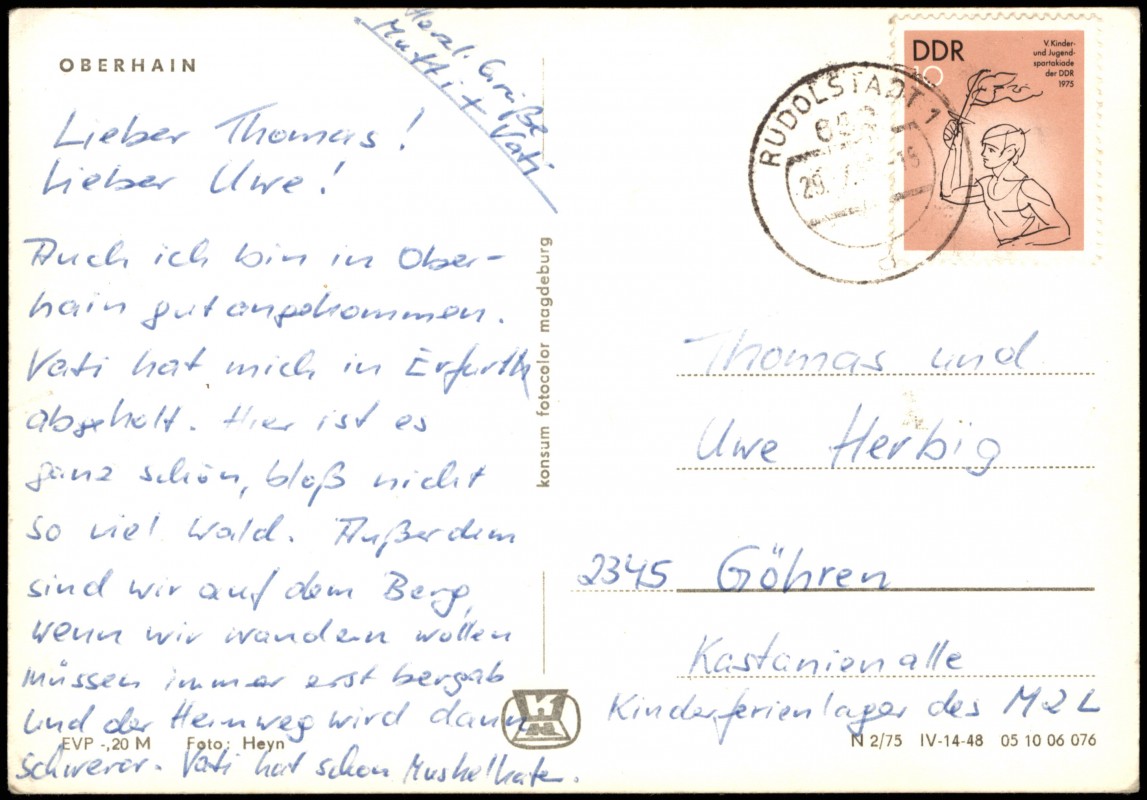 OBERHAIN
Herzl. Grüße
Mutti + Vati
Lieber Thomas!
Lieber Uwe!
Auch ich bin in Ober-
hain gut angekommen.
Vati hat mich in Erfurth
abgeholt. Hier ist es
ganz schön, bloß nicht
so viel Wald. Außerdem
sind wir auf dem Berg,
wenn wir wandern wollen
müssen immer erst bergab
und der Heimweg wird dann
schwerer. Vati hat schon Muskelkater.
EVP -,20 M Foto: Heyn
konsum fotocolor magdeburg
RUDOLSTADT 1
DDR
10
V. Kinder-
und Jugend-
spartakiade
der DDR
1975
Thomas und
Uwe Herbig
2345 Göhren
Kastanienalle
Kinderferienlager des M2L
N 2/75 IV-14-48 05 10 06 076